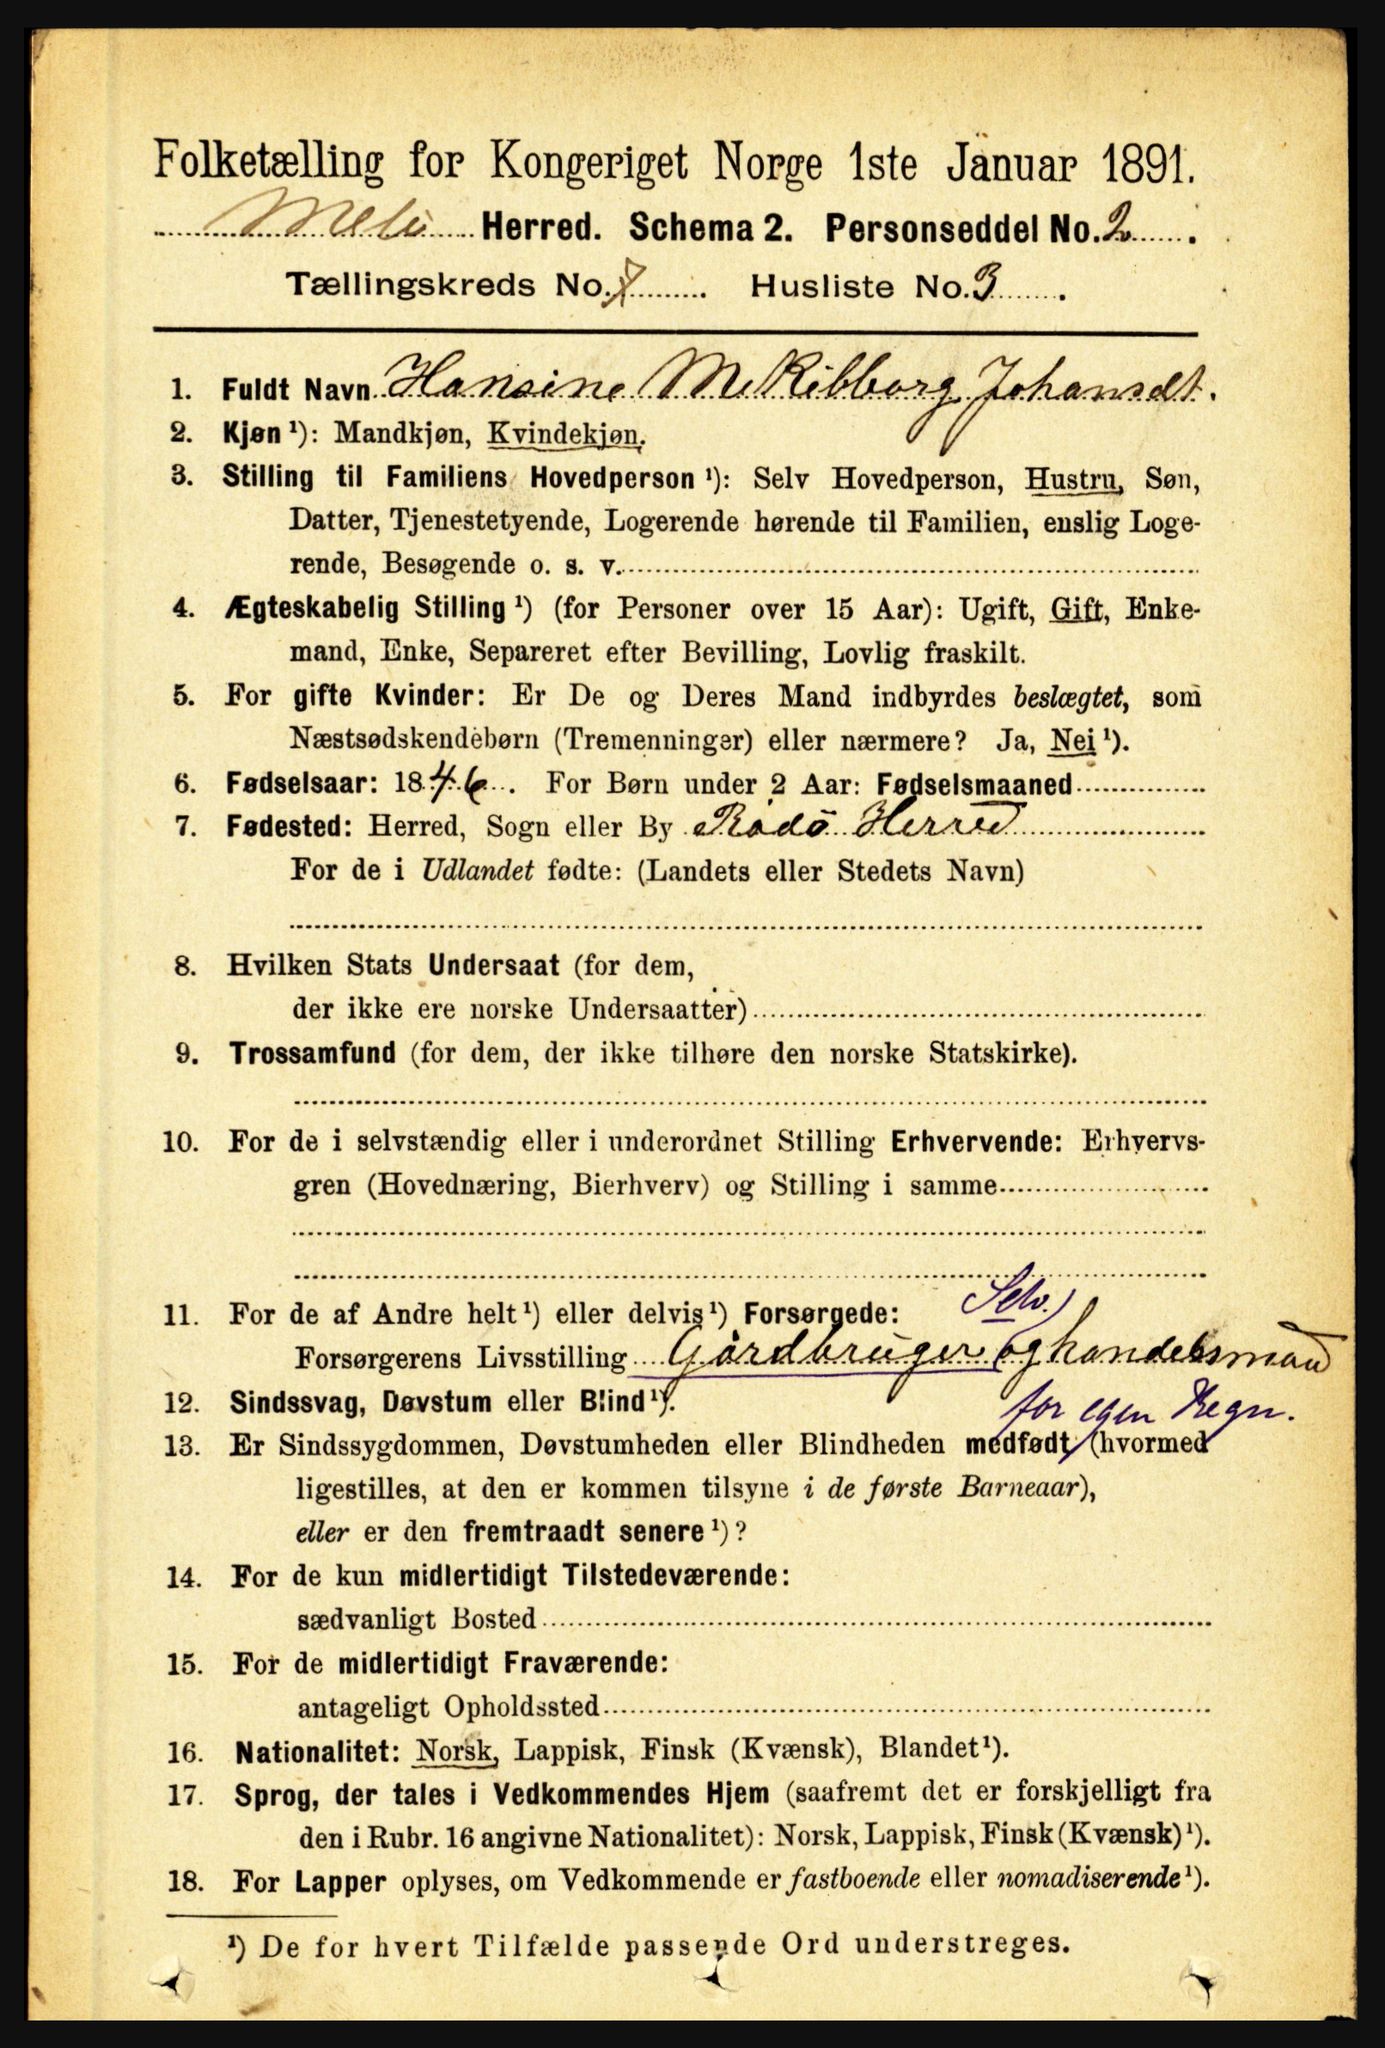 Folketælling for Kongeriget Norge 1ste Januar 1891.
Melø Herred. Schema 2. Personseddel No. 2.
Tællingskreds No. 7. Husliste No. 3.
1. Fuldt Navn Hansine M. Ribborg Johansdt.
2. Kjøn ¹): Mandkjøn, Kvindekjøn.
3. Stilling til Familiens Hovedperson ¹): Selv Hovedperson, Hustru, Søn,
Datter, Tjenestetyende, Logerende hørende til Familien, enslig Loge-
rende, Besøgende o. s. v.
4. Ægteskabelig Stilling ¹) (for Personer over 15 Aar): Ugift, Gift, Enke-
mand, Enke, Separeret efter Bevilling, Lovlig fraskilt.
5. For gifte Kvinder: Er De og Deres Mand indbyrdes beslægtet, som
Næstsødskendebørn (Tremenninger) eller nærmere? Ja, Nei ¹).
6. Fødselsaar: 1846. For Børn under 2 Aar: Fødselsmaaned
7. Fødested: Herred, Sogn eller By Rødø Herred
For de i Udlandet fødte: (Landets eller Stedets Navn)
8. Hvilken Stats Undersaat (for dem,
der ikke ere norske Undersaatter)
9. Trossamfund (for dem, der ikke tilhøre den norske Statskirke).
10. For de i selvstændig eller i underordnet Stilling Erhvervende: Erhvervs-
gren (Hovednæring, Bierhverv) og Stilling i samme
Selv.
11. For de af Andre helt ¹) eller delvis ¹) Forsørgede:
Forsørgerens Livsstilling Gårdbruger og handelsmand
12. Sindssvag, Døvstum eller Blind ¹).
for egen Regn.
13. Er Sindssygdommen, Døvstumheden eller Blindheden medfødt (hvormed
ligestilles, at den er kommen tilsyne i de første Barneaar),
eller er den fremtraadt senere ¹)?
14. For de kun midlertidigt Tilstedeværende:
sædvanligt Bosted
15. For de midlertidigt Fraværende:
antageligt Opholdssted
16. Nationalitet: Norsk, Lappisk, Finsk (Kvænsk), Blandet ¹).
17. Sprog, der tales i Vedkommendes Hjem (saafremt det er forskjelligt fra
den i Rubr. 16 angivne Nationalitet): Norsk, Lappisk, Finsk (Kvænsk) ¹).
18. For Lapper oplyses, om Vedkommende er fastboende eller nomadiserende ¹).
¹) De for hvert Tilfælde passende Ord understreges.